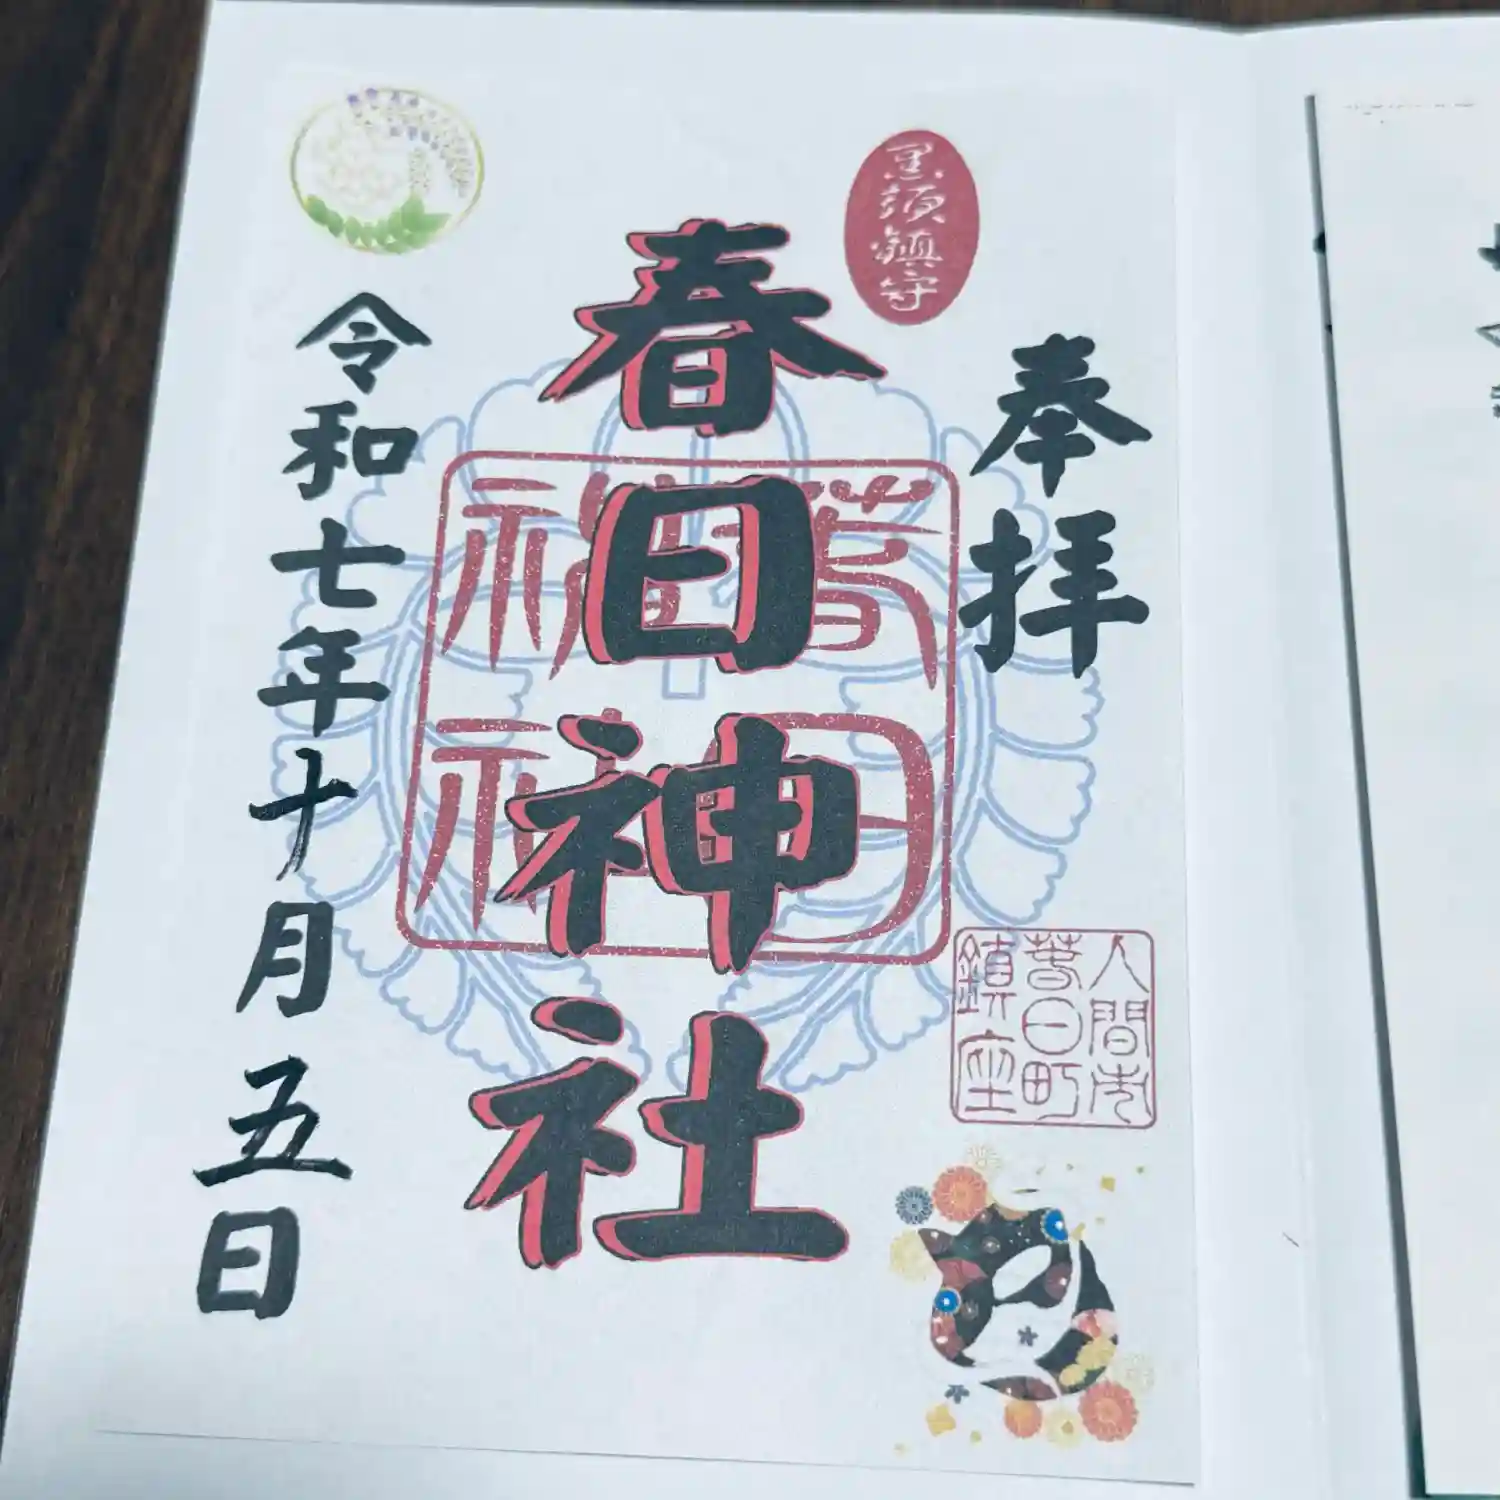 奉拝
黒須鎮守
春日神社
春日
神社
入間市
春日町
鎮座
令和七年十月五日